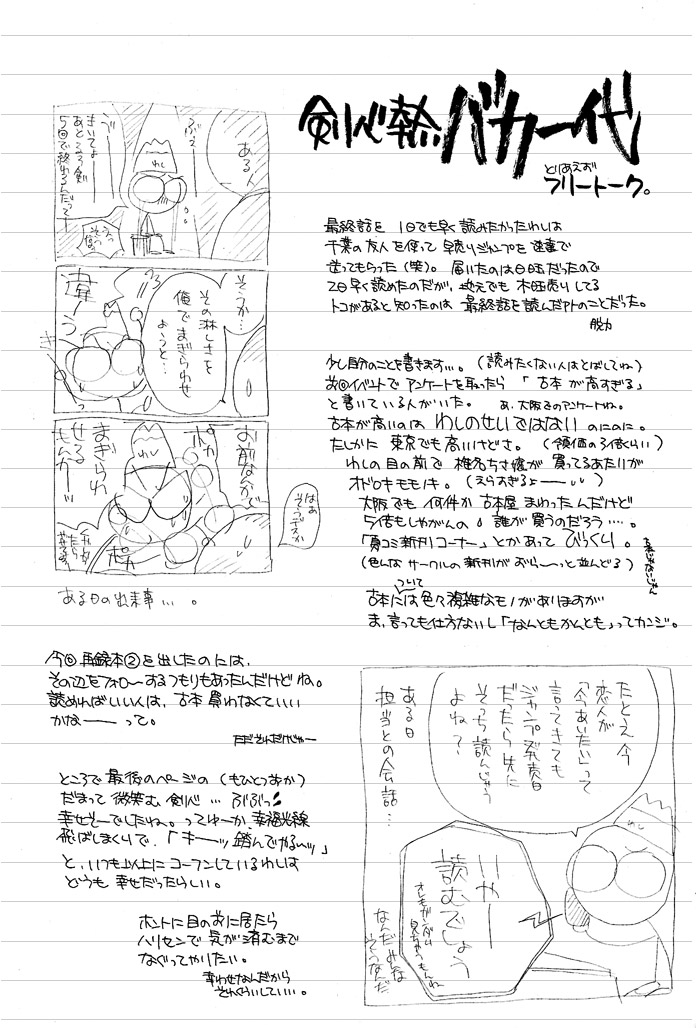 剣心熱バカ一代
とりあえお
フリートーク。
最終話を 1日でも早く読みたかったわしは
千葉の友人を使って早売りジャンプを速達で
送ってもらった(笑)。届いたのは日曜だったので
2日早く読めたのだが、地元でも 木曜売りしてる
トコがあると知ったのは 最終話を読んだアトのことだった。
脱力
少し自分のことを書きます…。(読みたくない人はとばしてね)
前回イベントで アンケートを取ったら 「古本が高すぎる」
と書いている人がいた。 あ、大阪でのアンケートね。
古本が高いのは わしのせいではないのにのに。
たしかに 東京でも高いけどさ。(額価の3倍くらい)
わしの目の前で 椎名ちさ嬢が 買ってるあたりが
オドロキモモノキ。(えらすぎるよーー)
大阪でも 何件か 古本屋 まわったんだけど
5倍もしやがんの 誰が買うのだろう…。
「買コミ新刊コーナー」とかあって びっくり。
(色んな サークルの新刊が ずら〜〜っと並んどる)
ついて
古本には色々複雑なモノがありますが
ま、言っても仕方ないし「なんともかんとも」ってカンジ。
ある人
ぶっ
きいてよ
あと るろ剣
5回で終わるんだって
えっ
そう
そうか…
その淋しさを
俺でまぎらわせ
ようと…
違う
わし
お前なんかで
まぎらわ
せる
もんかーッ
ポカ
ポカ
はあ
そうデスか
ある日の出来事…。
今回 再録本②を出したのには、
その辺をフォローするつもりもあったんだけどね。
読めればいい人は、古本 買わなくていい
かなーー って。
ただそんだけじゃー
ところで最後のページの (もひとつおか)
だまって 微笑む 剣心 … ぶぶっ
幸せそーでしたね。ってゆーか、幸福光線
飛ばしまくりで、「キーッッ踏んでやるーッ」
と、いつも以上に コーフンしているわしは
どうも 幸せだったらしい。
ホントに目の前に居たら
ハリセンで 気が済むまで
なぐってやりたい。
幸わせなんだから
それくらいしていい…。
ある日
担当との会話…
たとえ今
恋人が
「今あいたい」って
言ってきても
ジャンプ発売日
だったら 先に
そっち読んじゃう
よね?
いやー
読むでしょう
なんだ みな
そうなんだ